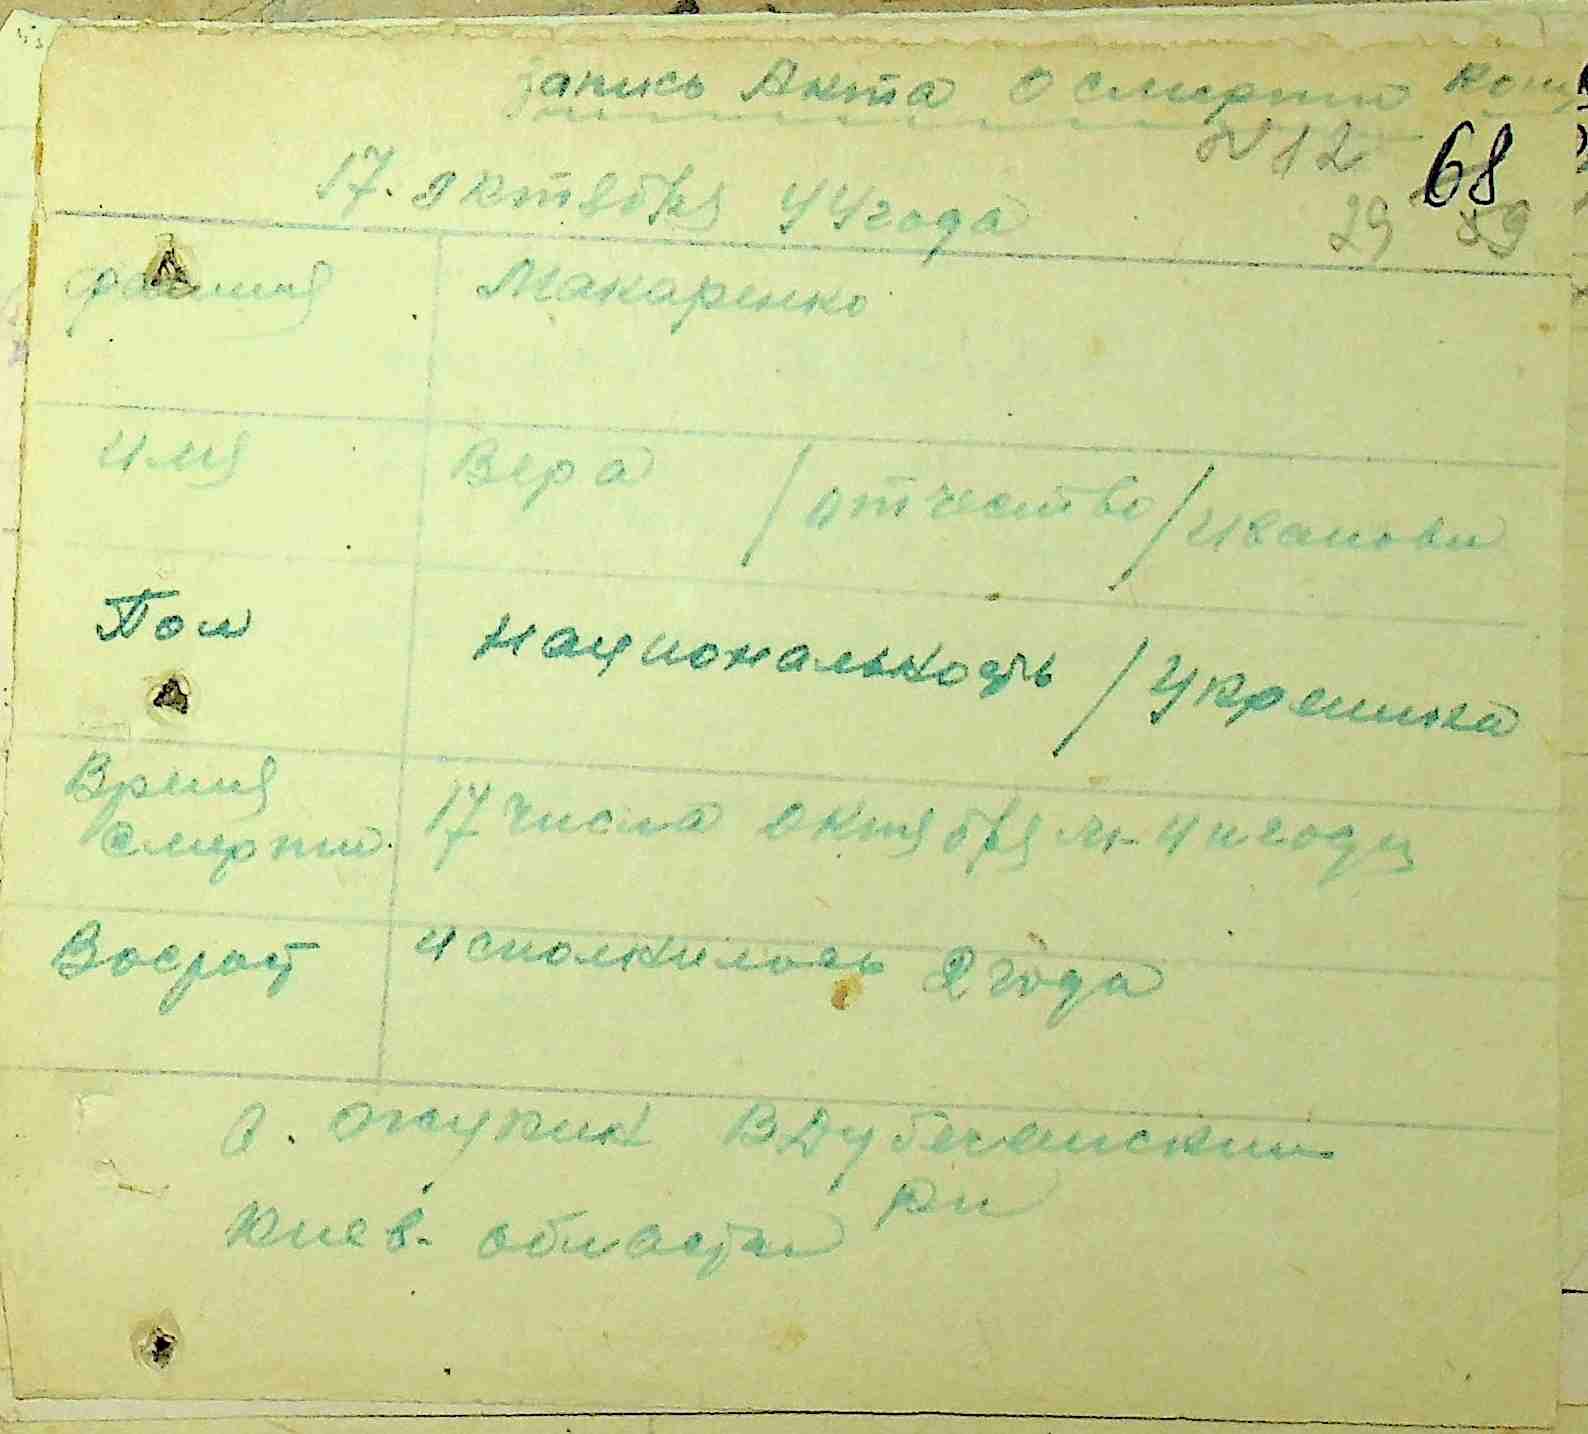 Запись Акта о смерти
№ 12
68
17. Октября 44 года
29 59
фамилия Макаренко
имя Вера / отчество / Иванови
Пол национальность / Украинка
Время 17 числа октября м-ц 44 года
смерти
Восраст исполнилось 2 года
с. Жукин В Дубечанский
рн
Киев. области